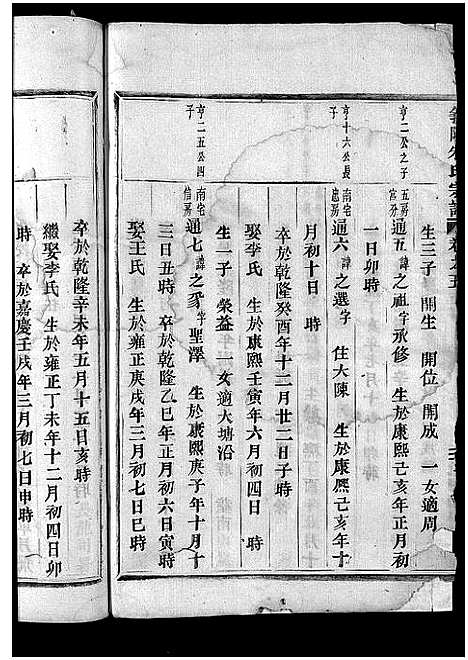 氏宗譜 卷之五
生三子 開生 開位 開成 一女適周
亨二公之子
五房宮分
通五 諱之祖字承修 生於康熙己亥年正月初
一日卯時
亨十六公長子
南宅忠房
通六 諱之選字 住大陳 生於康熙己亥年十
月初十日 時 卒於乾隆癸酉年十二月廿二日子時
娶李氏 生於康熙壬寅年六月初四日 時
生一子 榮益 一女適大塘沿
亨二五公四子
南宅信房
通七 諱之豸字聖澤 生於康熙庚子年十月十
三日丑時 卒於乾隆乙巳年正月初六日寅時
娶王氏 生於雍正庚戌年三月初七日巳時
卒於乾隆辛未年五月十五日亥時
繼娶李氏 生於雍正丁未年十二月初四日卯
時 卒於嘉慶壬戌年三月初七日申時